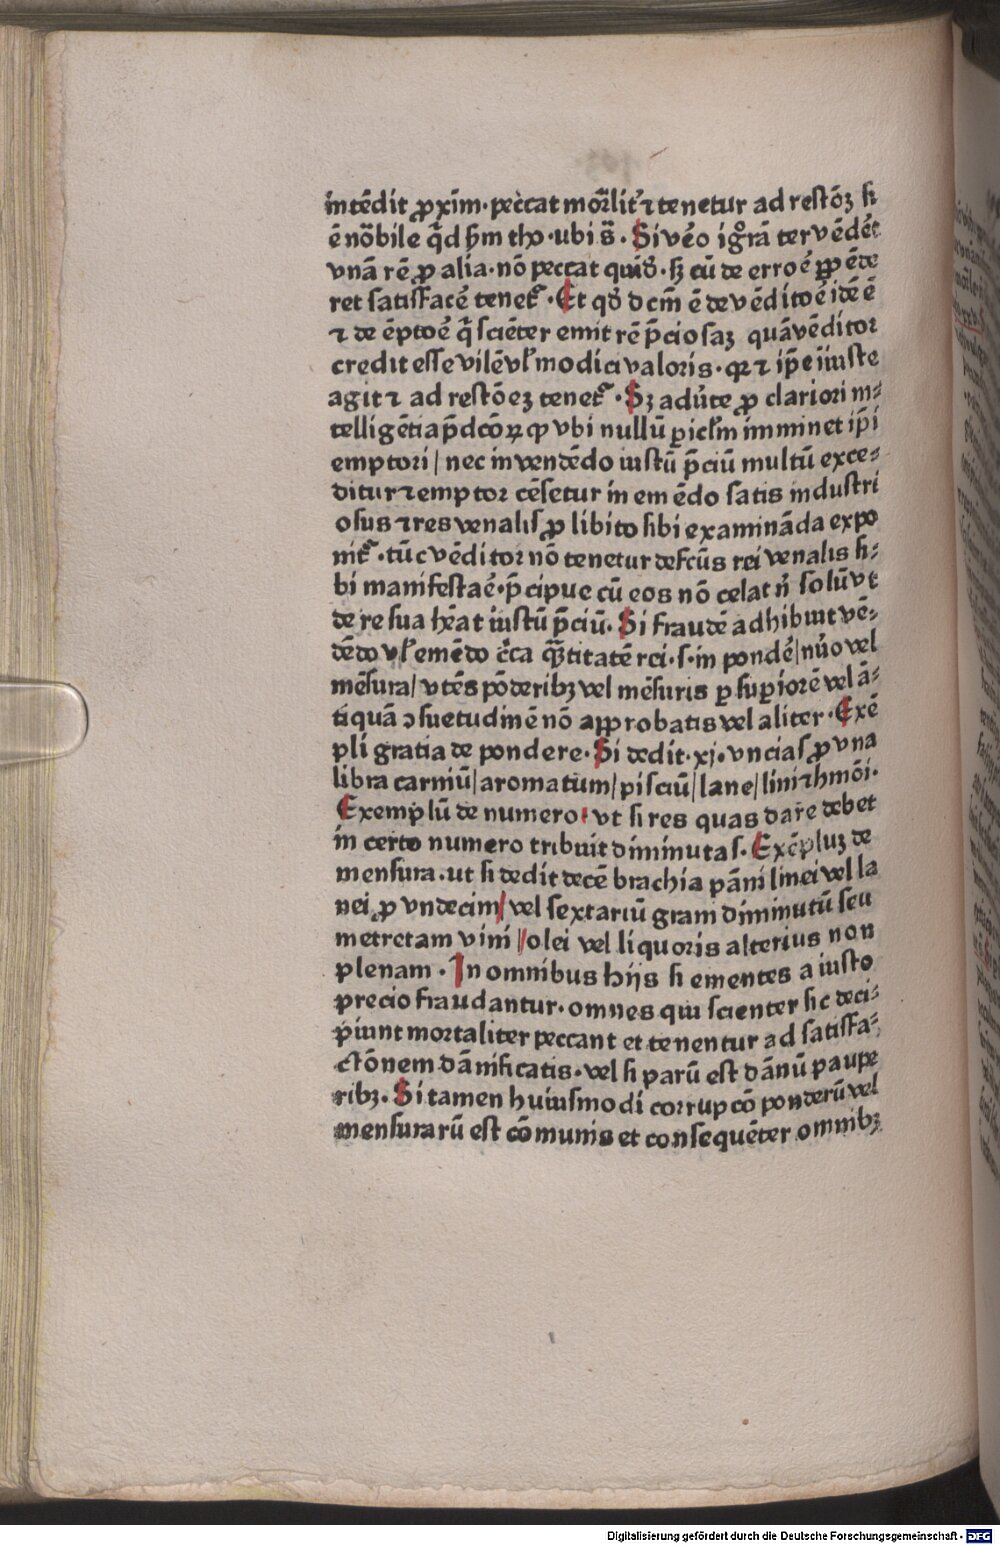 intēdit ꝓxīm· peccat mor̄lit᷑ ⁊ tenetur ad restōꝫ si
ē nōbile q̄d ẜm tho · ubi s̄ · Si vēo igr̄ā ter vēdēt
vnā rē ꝓ alia· nō peccat quidē· sꝫ cū de erroē ꝓpēde
ret satisfacē tenet᷑ · Et qd̛ dcm̄ ē de vēditoē idē ē
⁊ de ēptoē q̄ sciēter emit rē p̄ciosaꝫ quā vēditor
credit esse vilē vl̛ modici valoris· qꝛ ⁊ ip̄e iniuste
agit ⁊ ad restōeꝫ tenet᷑ · Sꝫ adūte ꝓ clariori in⸗
telligētia p̄dcōꝝ ꝙ vbi nullū ꝑicl̛m imminet ip̄i
emptori / nec in vendēdo iustū p̄ciū multū exce⸗
ditur ⁊ emptor cēsetur in emēdo satis industri
osus ⁊ res venalis ꝓ libito sibi examināda expo
nit᷑ · tūc vēditor nō tenetur defcūs rei venalis si⸗
bi manifestaē· p̄cipue cū eos nō celat n̄ solū vt
de re sua hēat iustū p̄ciū· Si fraudē adhibuit vē⸗
dēdo vl̛ emēdo c̄ca q̄titatē rei· s· in pondē / nūo vel
mēsura / vtēs pōderibꝫ vel mēsuris ꝑ suꝑiorē vel ā⸗
tiquā ɔsuetudinē nō approbatis vel aliter · Exē
pli gratia de pondere· Si dedit· xj· vncias ꝓ vna
libra carniū / aromatum / pisciū / lane / lini ⁊ hmōi·
Exemplū de numero· vt si res quas dare debet
in certo numero tribuit diminutas· Exēpluꝫ de
mensura· ut si dedit decē brachia pāni linei vel la
nei ꝓ vndecim / vel sextariū grani diminutū seu
metretam vini / olei vel liquoris alterius non
plenam · In omnibus hijs si ementes a iusto
precio fraudantur· omnes qui scienter sic deci⸗
piunt mortaliter peccant et tenentur ad satisfa⸗
ctōnem dānificatis· vel si parū est dānū paupe
ribꝫ· Si tamen huiusmodi corrupcō ponderū vel
mensurarū est cōmunis et consequēter omnibꝫ
Digitalisierung gefördert durch die Deutsche Forschungsgemeinschaft - DFG